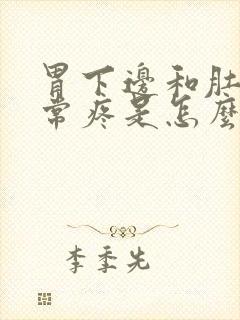 胃下邊和肚
常疼是怎麼
李季先